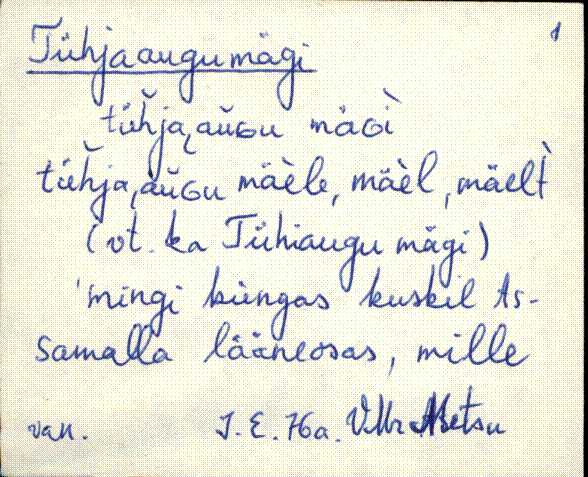 1
Tühjaaugumägi
tǖhja, aŭGu mäGì
tǖhja, aŭGu mäèle, mäèl, mäelt̀
(vt. ka Tühiaugu mägi)
mingi küngas kuskil As-
samalla lääneosas, mille
van. J. E. 76a. VMr Metsu